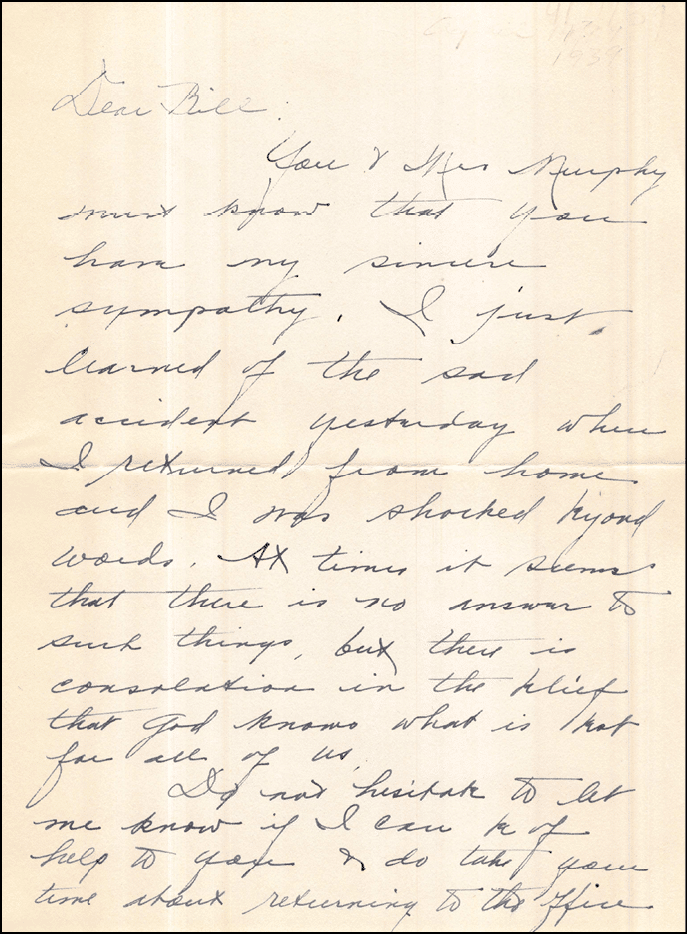 April
1939
Dear Bill:
You & Mrs Murphy
must know that you
have my sincere
sympathy. I just
learned of the sad
accident yesterday when
I returned from home
and I was shocked beyond
words. At times it seems
that there is no answer to
such things, but there is
consolation in the belief
that God knows what is best
for all of us.
Do not hesitate to let
me know if I can be of
help to you & do take your
time about returning to the office